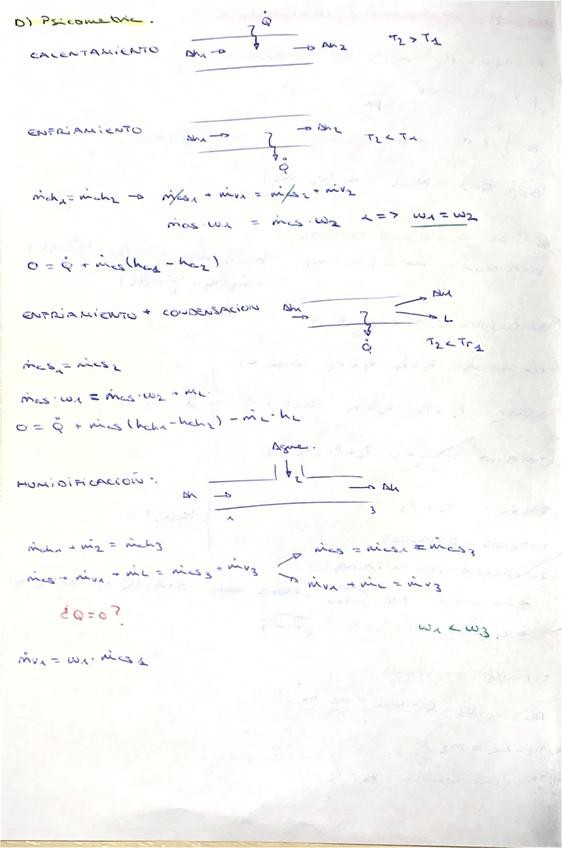 D) Psicometria.
CALENTAMIENTO Ah1 → Q̇ → Ah2 T2 > T1
ENFRIAMIENTO Ah1 → → Ah2 T2 < T1
Q̇
ṁah1 = ṁah2 → ṁas1 + ṁv1 = ṁas2 + ṁv2
ṁas · ω1 = ṁas · ω2 1 => ω1 = ω2
0 = Q̇ + ṁas (ha1 - ha2)
ENFRIAMIENTO + CONDENSACION Ah1 → Ah1
L
Q̇ T2 < Tr1
ṁas1 = ṁas2
ṁas · ω1 = ṁas · ω2 + ṁL
0 = Q̇ + ṁas (hah1 - hah2) - ṁL · hL
Agua.
HUMIDIFICACION: Ah → 2 → Ah
1 3
ṁah1 + ṁ2 = ṁah3
ṁas + ṁv1 + ṁL = ṁas3 + ṁv3
ṁas = ṁas1 = ṁas3
ṁv1 + ṁL = ṁv3
¿Q=0?
ω1 < ω3.
ṁv1 = ω1 · ṁas1